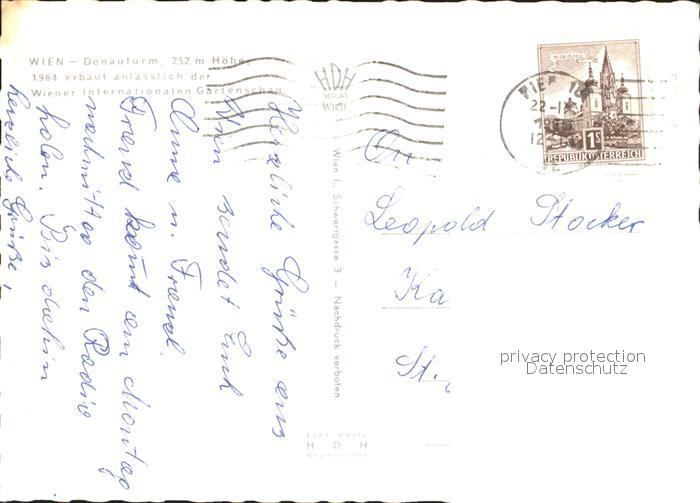 WIEN – Donauturm, 252 m Höhe
1964 erbaut anlässlich der
Wiener Internationalen Gartenschau
HDH
VERLAG
WIEN
MARIAZELL
22.-IX.
12
1S
REPUBLIK ÖSTERREICH
Wien I., Schwertgasse 3 – Nachdruck verboten
Echt Photo
HDH
Bromsilber
Herzliche Grüße aus
Wien sendet Euch
Anna u. Franzl.
Franzl kommt am Montag
nachmittag den Radio
holen. Bis dahin
herzliche Grüße,
Leopold Stocker
Ka
St.
privacy protection
Datenschutz